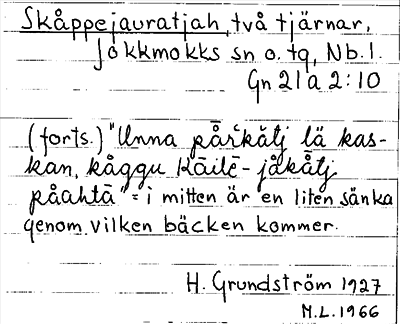 Skåppejauratjah, två tjärnar,
Jokkmokks sn o. tg, Nb. l.
Gn 21 a 2:10
(forts.) "Unna pårᵉkåtj lä kas-
kan, kåggu Kāilē-jåkåtj
påahtā" = i mitten är en liten sänka
genom vilken bäcken kommer.
H. Grundström 1927
M.L. 1966